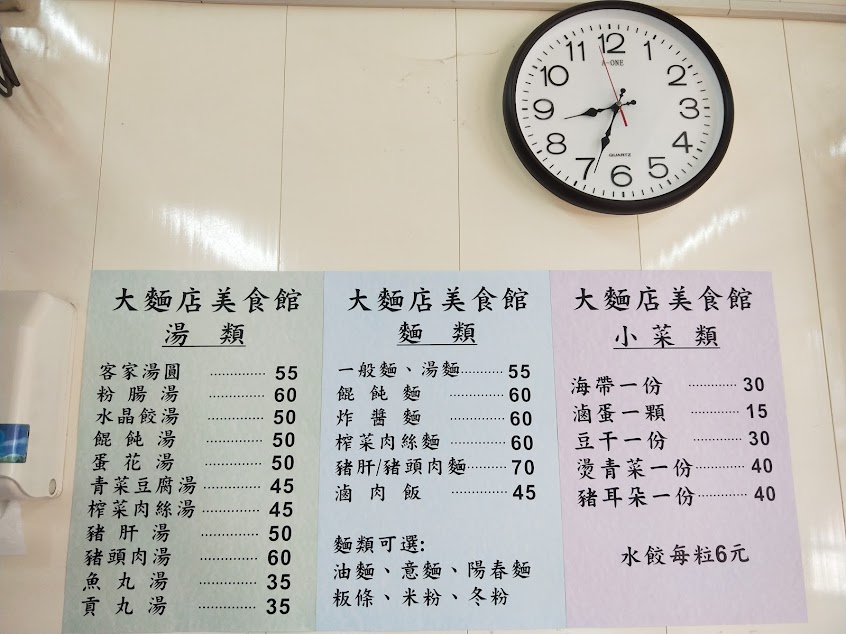 12
1
2
3
4
5
6
7
8
9
10
11
QUARTZ
大麵店美食館
湯 類
客家湯圓 ………… 55
粉腸湯 ………… 60
水晶餃湯 ………… 50
餛飩湯 ………… 50
蛋花湯 ………… 50
青菜豆腐湯 ………… 45
榨菜肉絲湯 ………… 45
豬肝湯 ………… 50
豬頭肉湯 ………… 60
魚丸湯 ………… 35
貢丸湯 ………… 35
大麵店美食館
麵 類
一般麵、湯麵 ………… 55
餛飩麵 ………… 60
炸醬麵 ………… 60
榨菜肉絲麵 ………… 60
豬肝/豬頭肉麵 ………… 70
滷肉飯 ………… 45
麵類可選:
油麵、意麵、陽春麵
粄條、米粉、冬粉
大麵店美食館
小菜類
海帶一份 ………… 30
滷蛋一顆 ………… 15
豆干一份 ………… 30
燙青菜一份 ………… 40
豬耳朵一份 ………… 40
水餃每粒6元